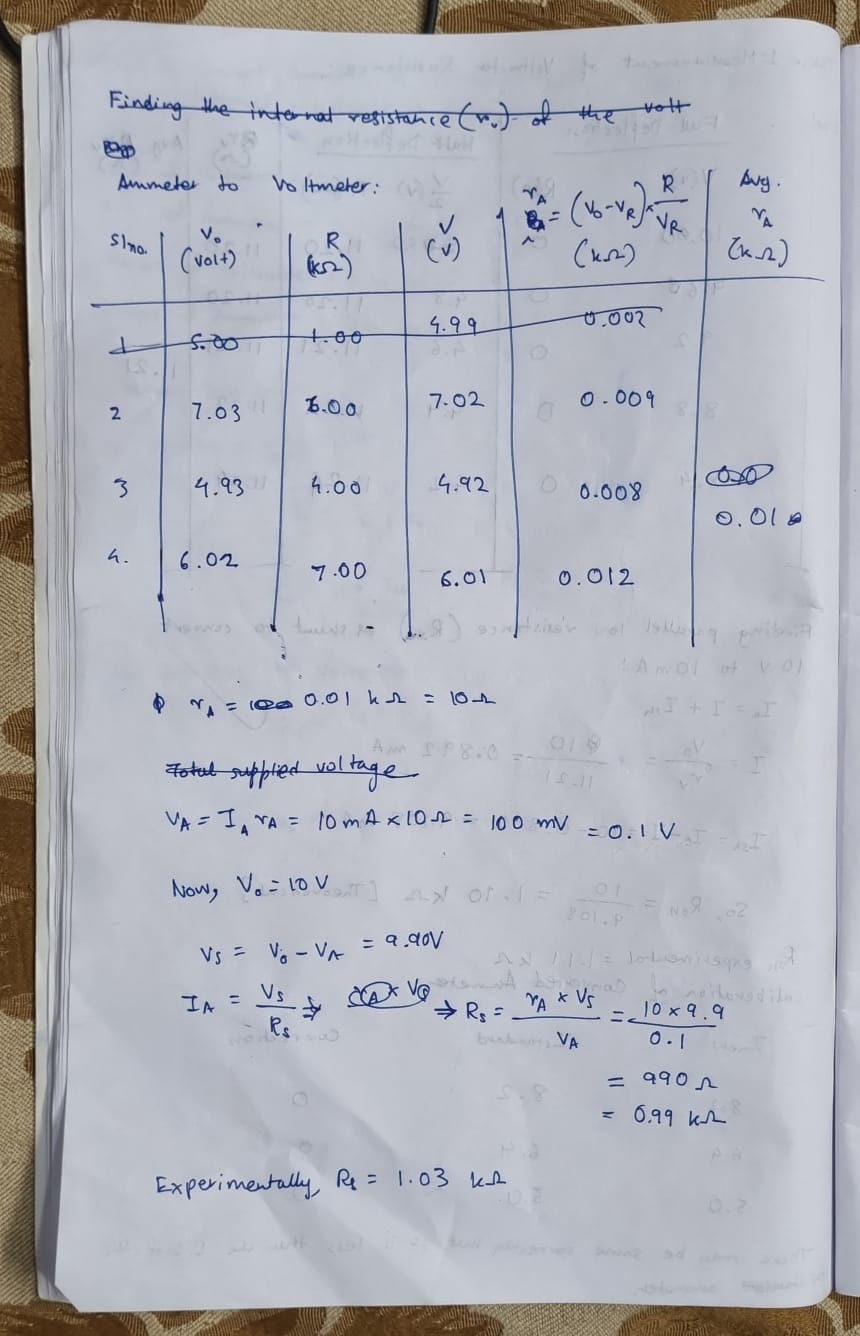 Finding the internal resistance (rᵥ) of the volt
Ammeter to Voltmeter:
Sl no. V₀ (volt) R (kΩ) V (V) r_A = (V₀-V_R) × R/V_R (kΩ) Avg. r_A (kΩ)
1 5.00 1.00 4.99 0.002
2 7.03 6.00 7.02 0.009
3 4.93 4.00 4.92 0.008
0.01
4. 6.02 7.00 6.01 0.012
r_A = 0.01 kΩ = 10Ω
Total supplied voltage
V_A = I_A r_A = 10mA × 10Ω = 100 mV = 0.1 V
Now, V₀ = 10 V
V_S = V₀ - V_A = 9.90V
I_A = V_S/R_S ⇒ ⇒ R_S = (r_A × V_S)/V_A = (10 × 9.9)/0.1
= 990 Ω
= 0.99 kΩ
Experimentally, R_S = 1.03 kΩ